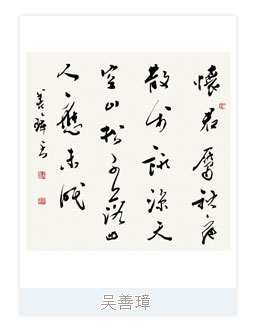 懷君屬秋夜
散步詠涼天
空山松子落幽
人應未眠
善璋書
吴善璋